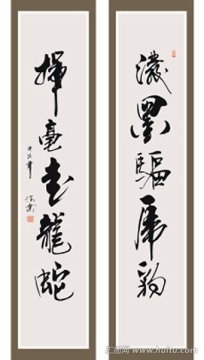 濃墨驅虎豹
揮毫走龍蛇
汇图网 www.huitu.com